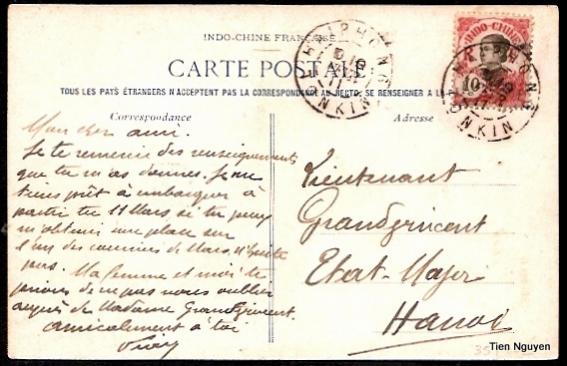 INDO-CHINE FRANÇAISE
CARTE POSTALE
TOUS LES PAYS ÉTRANGERS N'ACCEPTENT PAS LA CORRESPONDANCE AU RECTO, SE RENSEIGNER A LA
Correspondance
Adresse
HAIPHONG
TONKIN
INDO-CHINE
10
HAIPHONG
TONKIN
Mon cher ami.
Je te remercie des renseignements
que tu m'as donnés. Je me
tiens prêt à embarquer à
partir du 11 Mars si tu peux
m'obtenir une place sur
l'un des courriers de Mars, n'hésite
pas. Ma femme et moi te
prions de ne pas nous oublier
auprès de Madame Grandjincent.
amicalement à toi
Lieutenant
Grandjincent
Etat-Major
Hanoi
35
Tien Nguyen